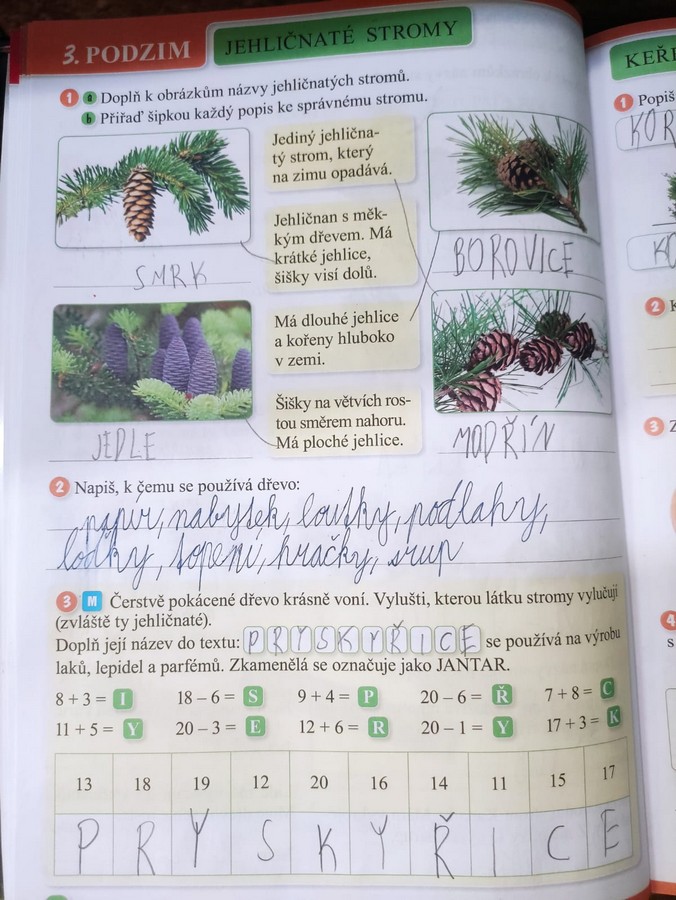 3. PODZIM
JEHLIČNATÉ STROMY
1 a Doplň k obrázkům názvy jehličnatých stromů.
b Přiřaď šipkou každý popis ke správnému stromu.
Jediný jehlična-
tý strom, který
na zimu opadává.
Jehličnan s měk-
kým dřevem. Má
krátké jehlice,
šišky visí dolů.
SMRK
BOROVICE
Má dlouhé jehlice
a kořeny hluboko
v zemi.
Šišky na větvích ros-
tou směrem nahoru.
Má ploché jehlice.
JEDLE
MODŘÍN
2 Napiš, k čemu se používá dřevo:
papír, nabytek, loutky, podlahy,
loďky, topení, hračky, srup
3 M Čerstvě pokácené dřevo krásně voní. Vylušti, kterou látku stromy vylučují
(zvláště ty jehličnaté).
Doplň její název do textu: PRYSKYŘICE se používá na výrobu
laků, lepidel a parfémů. Zkamenělá se označuje jako JANTAR.
8 + 3 = I 18 – 6 = S 9 + 4 = P 20 – 6 = Ř 7 + 8 = C
11 + 5 = Y 20 – 3 = E 12 + 6 = R 20 – 1 = Y 17 + 3 = K
13 18 19 12 20 16 14 11 15 17
P R Y S K Y Ř I C E
KEŘ
1 Popiš
KOR
KO
2 K
3 Z
4
s